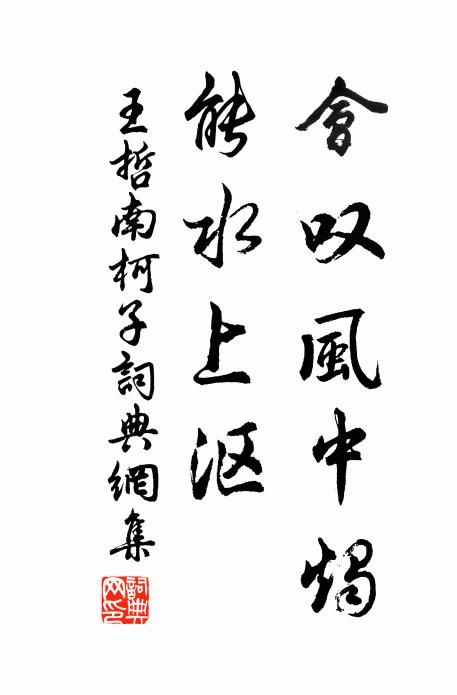 會叹風中燭
能水上沤
王哲南柯子詞典網集
詞典網印